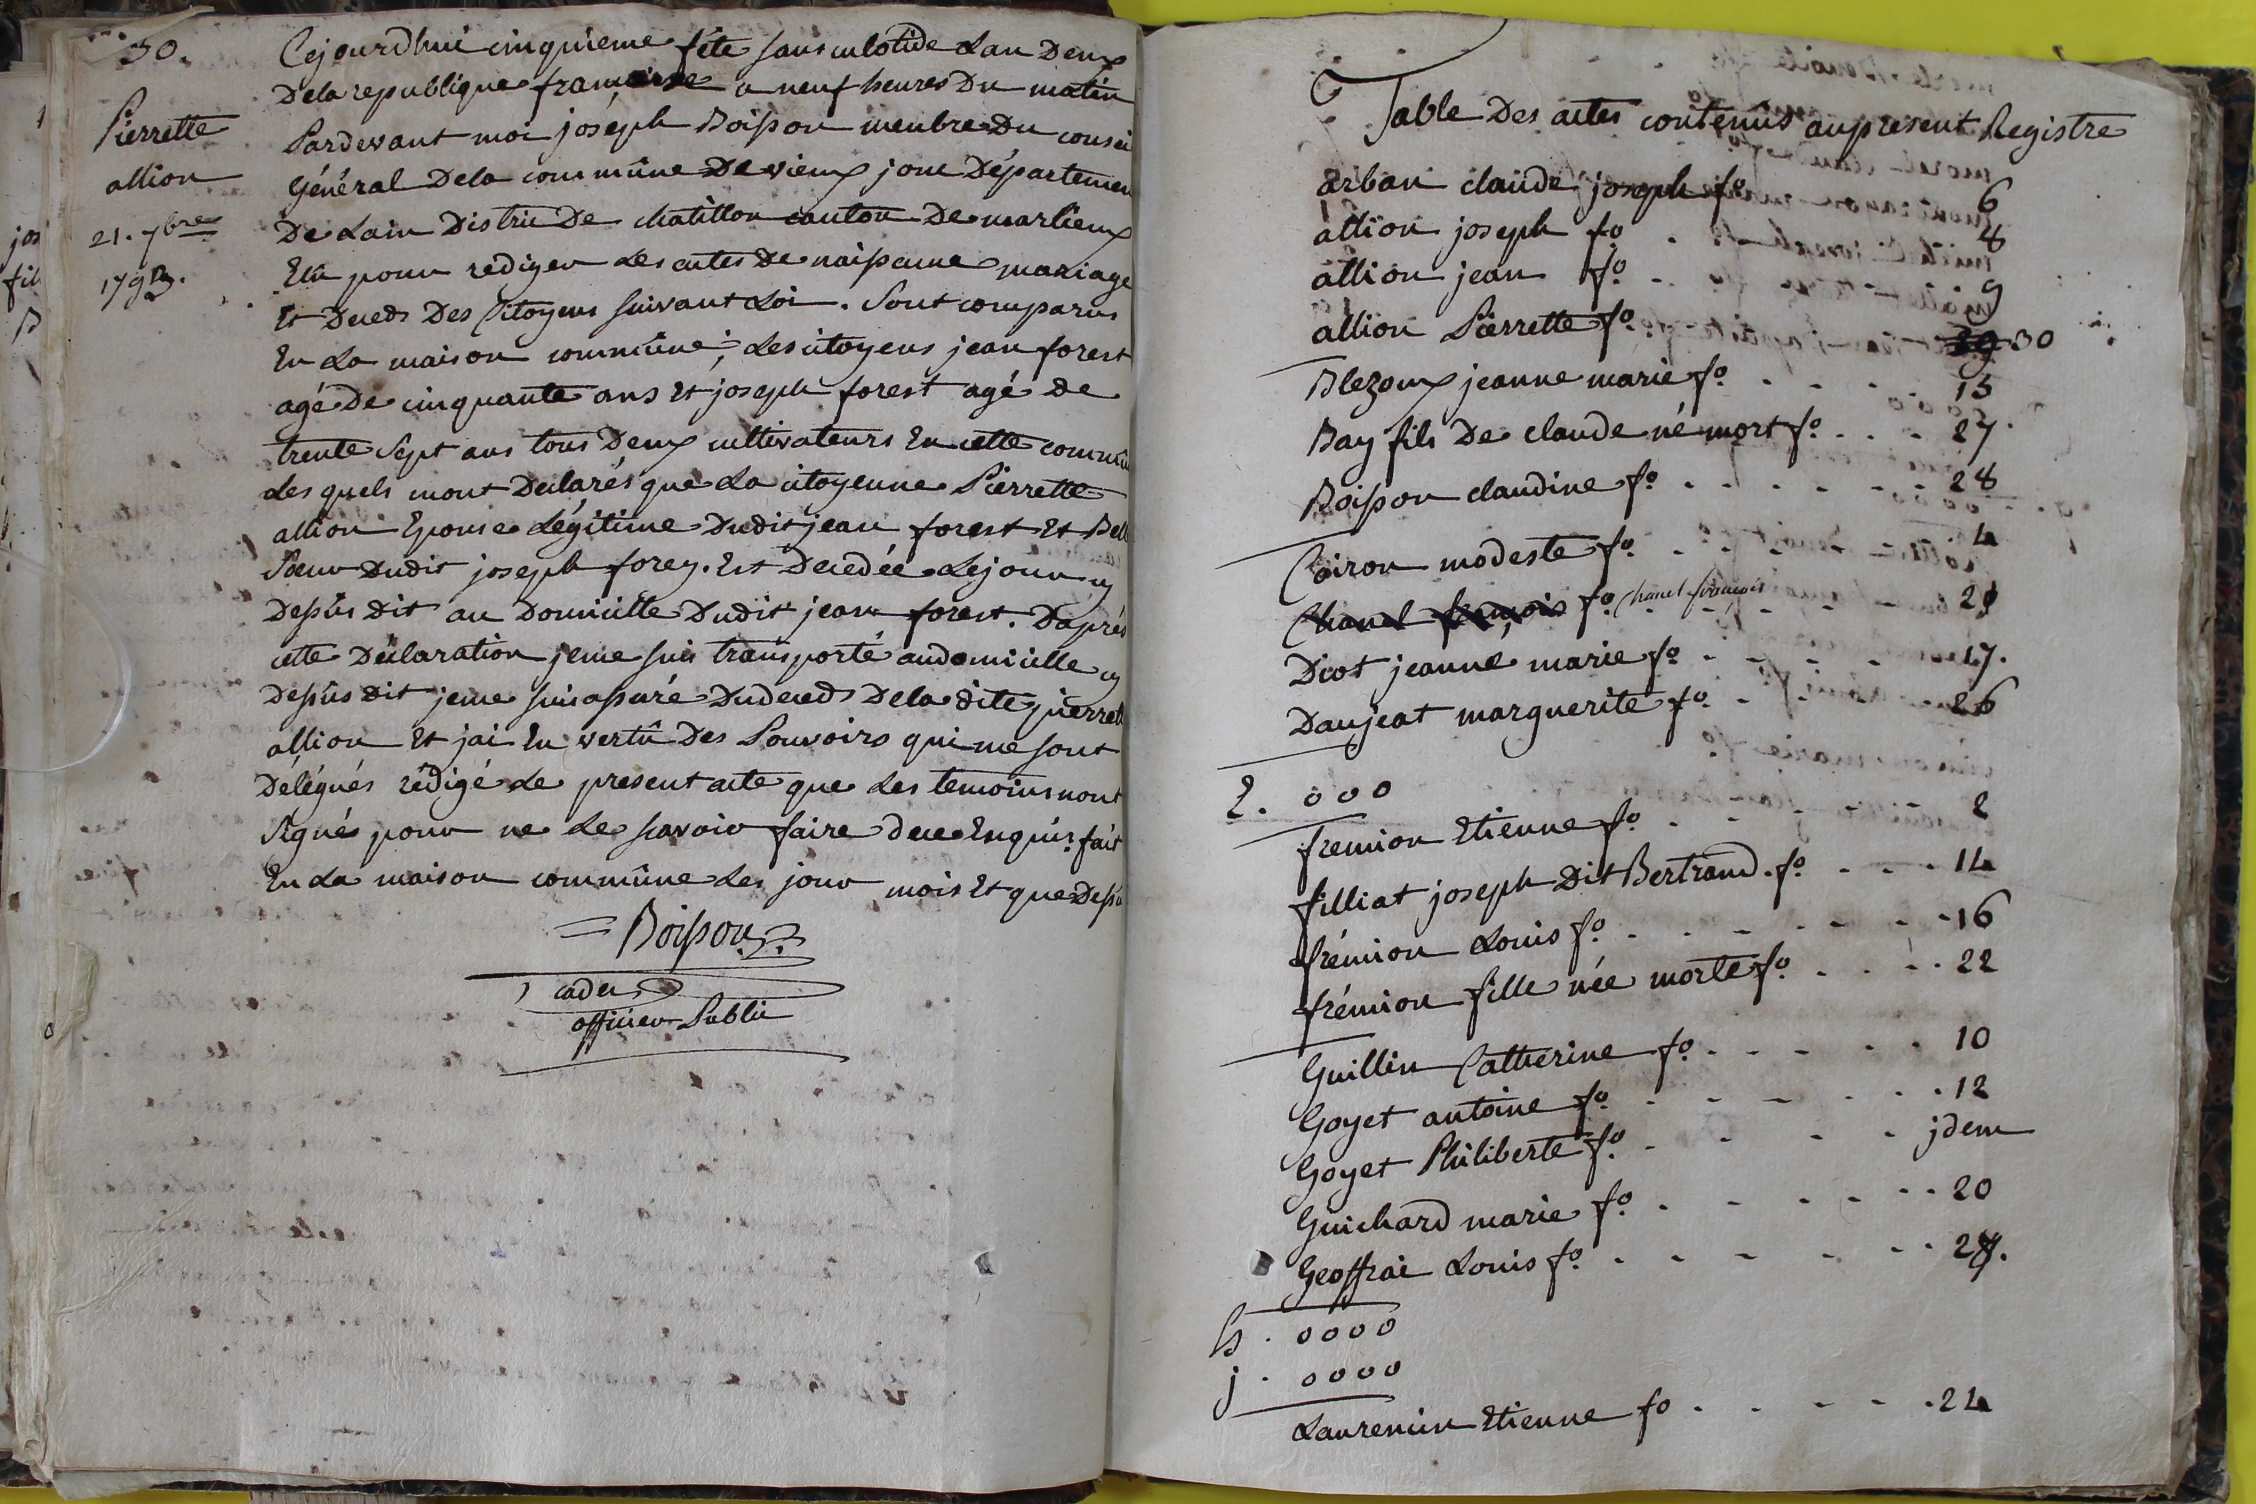 30.
Pierrette
allion
21. 7bre
179
Cejourdhui cinquieme fête sanculotide Lan Deux
Dela republique francoise a neuf heures Du matin
Pardevant moi joséph Boisson menbre Du consei
Général Dela commûne De vieux jonc Départemen
De Lain District De chatillon canton De marlieux
Elû pour rediger Les actes De naissance mariage
Et Deceds Des Citoyens suivant Loi. Sont comparus
En La maison commûne, Les citoyens jean forest
agé De cinquante ans Et joseph forest agé de
trente Sept ans tous Deux cultivateurs En cette commûn
Les quels mont Declarés que La citoyenne Pierrette
allion Epouse Légitime Dudit jean forest Et Bell
Soeur Dudit joseph forey. Est Décedée Lejour cy
Dessus dit au Domicille Dudit jean forest. Daprés
cette Déclaration jeme suis transporté audomicille cy
Dessus dit jeme suis assuré Dudeceds Dela dite pierrett
allion Et jai En vertû Des Pouvoirs qui me sont
Delégués rédigé Le present acte que Les temoins nont
signés pour ne Le savoir faire dece Enquis: fait
En La maison commûne Les jour mois Et que Dessu
= Boisson
cadet
officier Public
Table Des actes contenûs aupresent Registre
arban claude joseph fo 6
allion joseph fo 8
allion jean fo 9
allion Pierrette fo 30
Blezoux jeanne marie fo 15
Bay fils De claude né mort fo 27
Boisson claudine fo 28
Coiron modeste fo 4
Chanel françois fo Chanel francois 29
Dicot jeanne marie fo 17.
Daujeat marguerite fo 26
E. 000
fremion Etienne fo 2
filliat joseph Dit Bertrand. fo 14
frémion Louis fo 16
frémion fille née morte fo 22
Guillin Catherine fo 10
Goyet antoine fo 12
Goyet Philiberte fo jdem
Guichard marie fo 20
Geoffrai Louis fo 27.
h. 0000
j. 0000
Laurencin Etienne fo 24